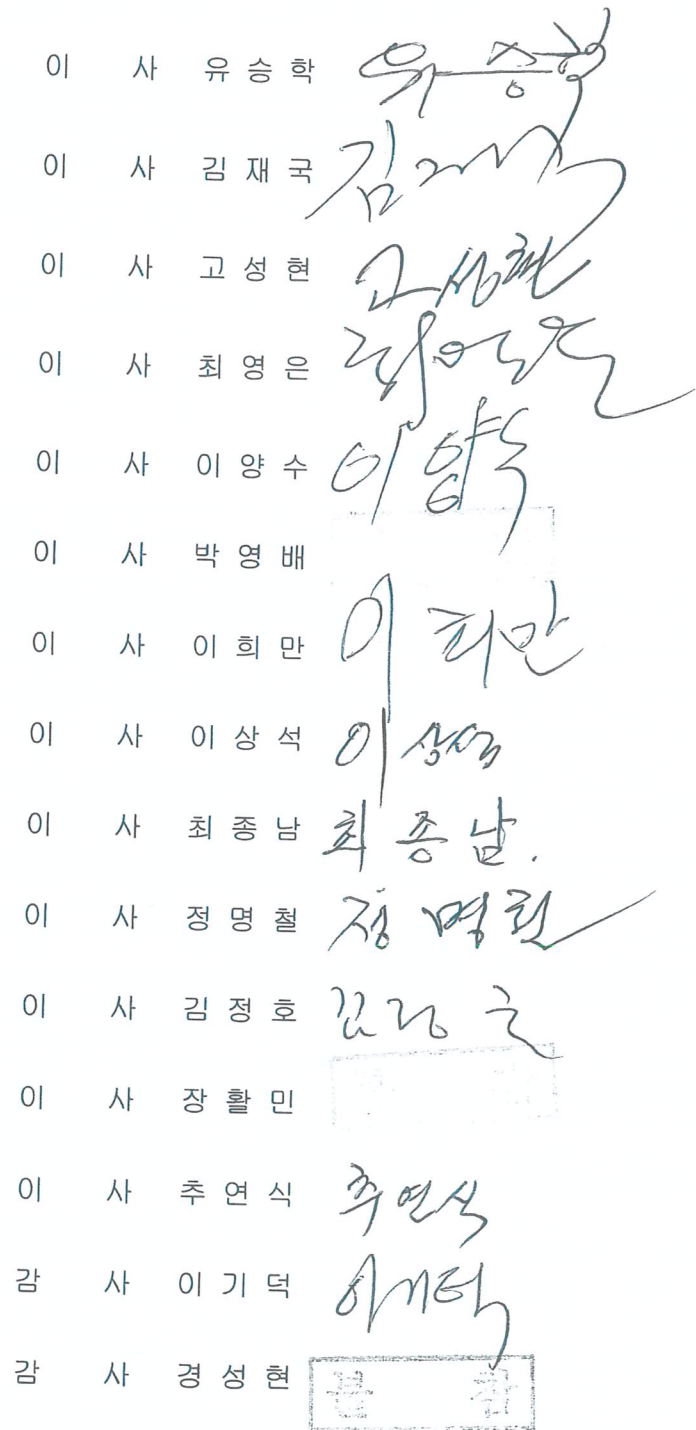 이 사 유 승 학 유승학
이 사 김 재 국 김재국
이 사 고 성 현 고성현
이 사 최 영 은 최영은
이 사 이 양 수 이양수
이 사 박 영 배
이 사 이 희 만 이희만
이 사 이 상 석 이상석
이 사 최 종 남 최종남.
이 사 정 명 철 정명철
이 사 김 정 호 김정호
이 사 장 활 민
이 사 추 연 식 추연식
감 사 이 기 덕 이기덕
감 사 경 성 현 불 참